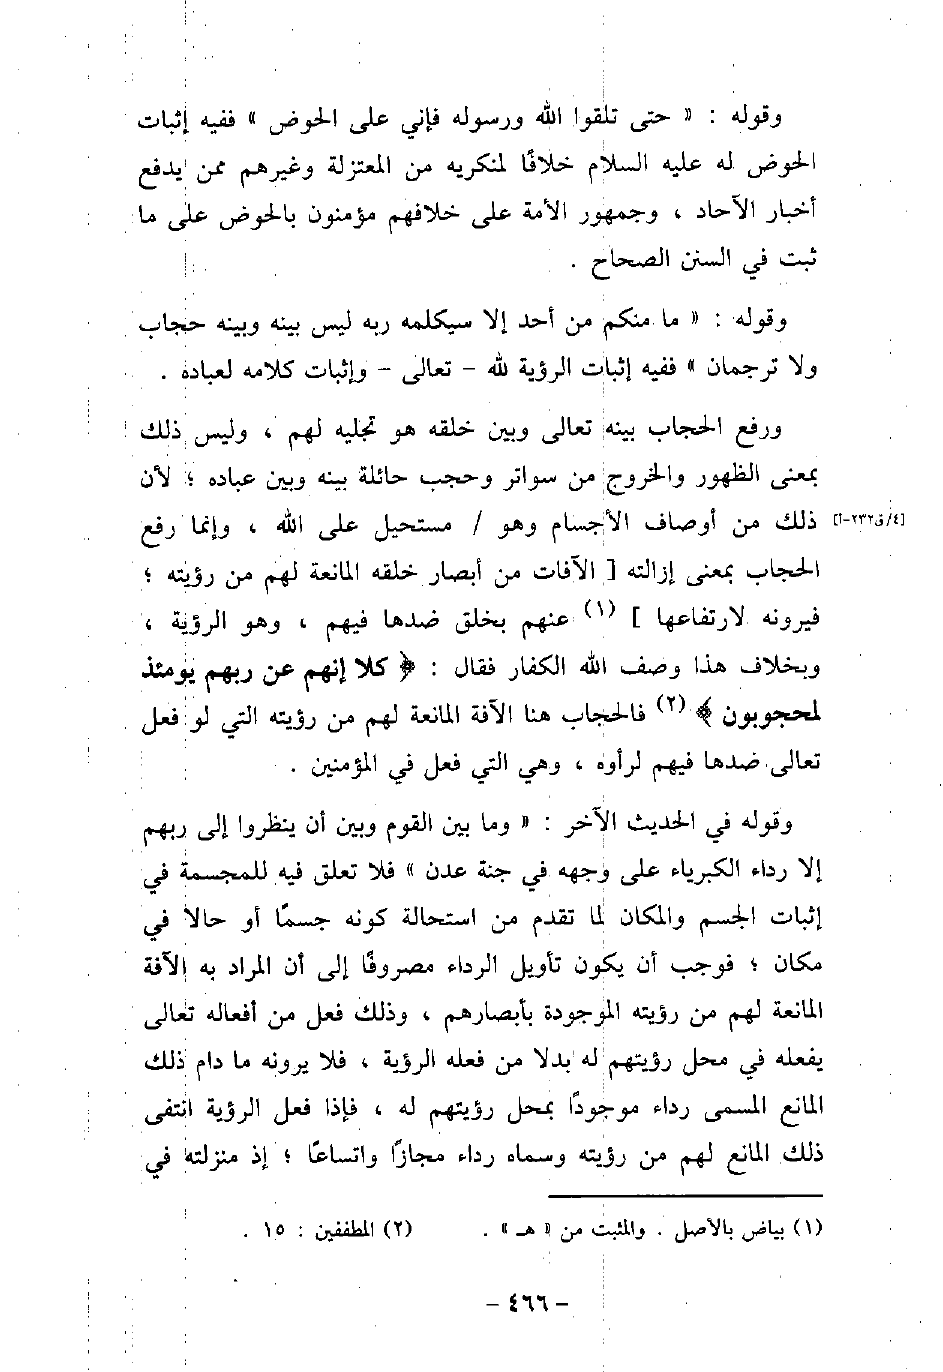 وقوله : « حتى تلقوا الله ورسوله فإني على الحوض » ففيه إثبات
الحوض له عليه السلام خلافًا لمنكريه من المعتزلة وغيرهم ممن يدفع
أخبار الآحاد ، وجمهور الأمة على خلافهم مؤمنون بالحوض على ما
ثبت في السنن الصحاح .
وقوله : « ما منكم من أحد إلا سيكلمه ربه ليس بينه وبينه حجاب
ولا ترجمان » ففيه إثبات الرؤية لله - تعالى - وإثبات كلامه لعباده .
ورفع الحجاب بينه تعالى وبين خلقه هو تجليه لهم ، وليس ذلك
بمعنى الظهور والخروج من سواتر وحجب حائلة بينه وبين عباده ؛ لأن
ذلك من أوصاف الأجسام وهو / مستحيل على الله ، وإنما رفع [٤/ق٢٣٢-أ]
الحجاب بمعنى إزالته [ الآفات من أبصار خلقه المانعة لهم من رؤيته ؛
فيرونه لارتفاعها ] (١) عنهم بخلق ضدها فيهم ، وهو الرؤية ،
وبخلاف هذا وصف الله الكفار فقال : ﴿ كلا إنهم عن ربهم يومئذ
لمحجوبون ﴾ (٢) فالحجاب هنا الآفة المانعة لهم من رؤيته التي لو فعل
تعالى ضدها فيهم لرأوه ، وهي التي فعل في المؤمنين .
وقوله في الحديث الآخر : « وما بين القوم وبين أن ينظروا إلى ربهم
إلا رداء الكبرياء على وجهه في جنة عدن » فلا تعلق فيه للمجسمة في
إثبات الجسم والمكان لما تقدم من استحالة كونه جسمًا أو حالا في
مكان ؛ فوجب أن يكون تأويل الرداء مصروفًا إلى أن المراد به الآفة
المانعة لهم من رؤيته الموجودة بأبصارهم ، وذلك فعل من أفعاله تعالى
يفعله في محل رؤيتهم له بدلا من فعله الرؤية ، فلا يرونه ما دام ذلك
المانع المسمى رداء موجودًا بمحل رؤيتهم له ، فإذا فعل الرؤية انتفى
ذلك المانع لهم من رؤيته وسماه رداء مجازًا واتساعًا ؛ إذ منزلته في
(١) بياض بالأصل . والمثبت من « هـ » . (٢) المطففين : ١٥ .
- ٤٦٦ -